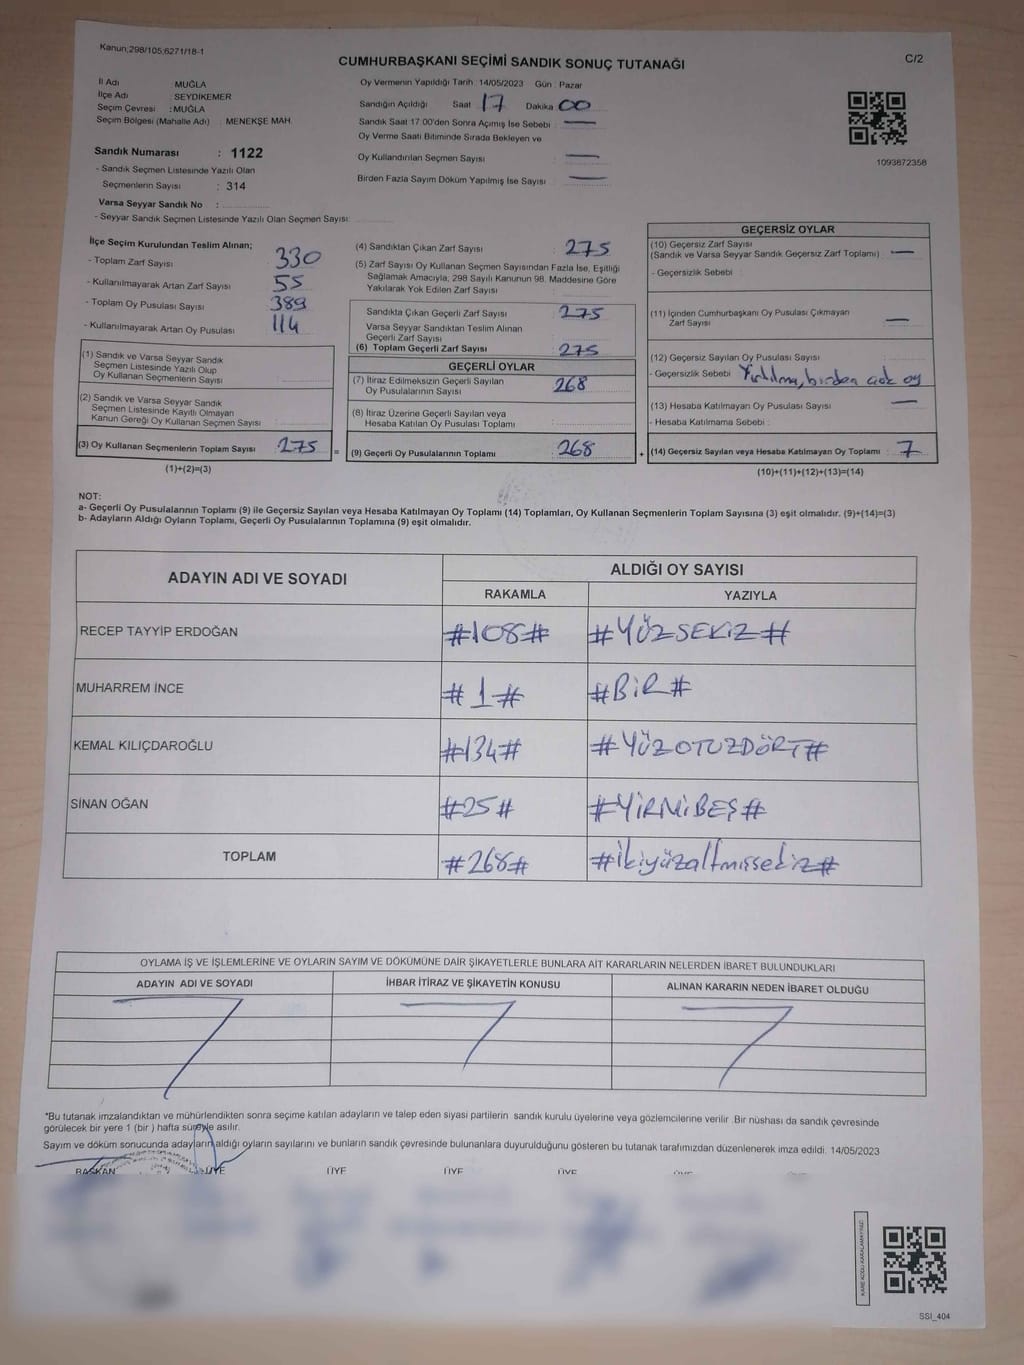 Kanun;298/105;6271/18-1
CUMHURBAŞKANI SEÇİMİ SANDIK SONUÇ TUTANAĞI
C/2
İl Adı : MUĞLA
İlçe Adı : SEYDİKEMER
Seçim Çevresi : MUĞLA
Seçim Bölgesi (Mahalle Adı) : MENEKŞE MAH.
Sandık Numarası : 1122
- Sandık Seçmen Listesinde Yazılı Olan
Seçmenlerin Sayısı : 314
Varsa Seyyar Sandık No :
- Seyyar Sandık Seçmen Listesinde Yazılı Olan Seçmen Sayısı:
Oy Vermenin Yapıldığı Tarih : 14/05/2023 Gün : Pazar
Sandığın Açıldığı Saat 17 Dakika 00
Sandık Saat 17.00'den Sonra Açımış İse Sebebi : —
Oy Verme Saati Bitiminde Sırada Bekleyen ve
Oy Kullandırılan Seçmen Sayısı : —
Birden Fazla Sayım Döküm Yapılmış İse Sayısı : —
1093872358
İlçe Seçim Kurulundan Teslim Alınan;
- Toplam Zarf Sayısı : 330
- Kullanılmayarak Artan Zarf Sayısı : 55
- Toplam Oy Pusulası Sayısı : 389
- Kullanılmayarak Artan Oy Pusulası : 114
(1) Sandık ve Varsa Seyyar Sandık
Seçmen Listesinde Yazılı Olup
Oy Kullanan Seçmenlerin Sayısı :
(2) Sandık ve Varsa Seyyar Sandık
Seçmen Listesinde Kayıtlı Olmayan
Kanun Gereği Oy Kullanan Seçmen Sayısı :
(3) Oy Kullanan Seçmenlerin Toplam Sayısı : 275
(1)+(2)=(3)
(4) Sandıktan Çıkan Zarf Sayısı : 275
(5) Zarf Sayısı Oy Kullanan Seçmen Sayısından Fazla İse, Eşitliği
Sağlamak Amacıyla, 298 Sayılı Kanunun 98. Maddesine Göre
Yakılarak Yok Edilen Zarf Sayısı :
Sandıkta Çıkan Geçerli Zarf Sayısı : 275
Varsa Seyyar Sandıktan Teslim Alınan
Geçerli Zarf Sayısı :
(6) Toplam Geçerli Zarf Sayısı : 275
GEÇERLİ OYLAR
(7) İtiraz Edilmeksizin Geçerli Sayılan
Oy Pusulalarının Sayısı : 268
(8) İtiraz Üzerine Geçerli Sayılan veya
Hesaba Katılan Oy Pusulası Toplamı :
= (9) Geçerli Oy Pusulalarının Toplamı : 268
GEÇERSİZ OYLAR
(10) Geçersiz Zarf Sayısı
(Sandık ve Varsa Seyyar Sandık Geçersiz Zarf Toplamı) : —
- Geçersizlik Sebebi :
(11) İçinden Cumhurbaşkanı Oy Pusulası Çıkmayan
Zarf Sayısı : —
(12) Geçersiz Sayılan Oy Pusulası Sayısı :
- Geçersizlik Sebebi Yırtılma, birden çok oy
(13) Hesaba Katılmayan Oy Pusulası Sayısı : —
- Hesaba Katılmama Sebebi :
+ (14) Geçersiz Sayılan veya Hesaba Katılmayan Oy Toplamı : 7
(10)+(11)+(12)+(13)=(14)
NOT:
a- Geçerli Oy Pusulalarının Toplamı (9) ile Geçersiz Sayılan veya Hesaba Katılmayan Oy Toplamı (14) Toplamları, Oy Kullanan Seçmenlerin Toplam Sayısına (3) eşit olmalıdır. (9)+(14)=(3)
b- Adayların Aldığı Oyların Toplamı, Geçerli Oy Pusulalarının Toplamına (9) eşit olmalıdır.
ADAYIN ADI VE SOYADI ALDIĞI OY SAYISI
RAKAMLA YAZIYLA
RECEP TAYYİP ERDOĞAN #108# #YÜZSEKİZ#
MUHARREM İNCE #1# #BİR#
KEMAL KILIÇDAROĞLU #134# #YÜZOTUZDÖRT#
SİNAN OĞAN #25# #YİRMİBEŞ#
TOPLAM #268# #ikiyüzaltmışsekiz#
OYLAMA İŞ VE İŞLEMLERİNE VE OYLARIN SAYIM VE DÖKÜMÜNE DAİR ŞİKAYETLERLE BUNLARA AİT KARARLARIN NELERDEN İBARET BULUNDUKLARI
ADAYIN ADI VE SOYADI İHBAR İTİRAZ VE ŞİKAYETİN KONUSU ALINAN KARARIN NEDEN İBARET OLDUĞU
*Bu tutanak imzalandıktan ve mühürlendikten sonra seçime katılan adayların ve talep eden siyasi partilerin sandık kurulu üyelerine veya gözlemcilerine verilir. Bir nüshası da sandık çevresinde
görülecek bir yere 1 (bir ) hafta süreyle asılır.
Sayım ve döküm sonucunda adayların aldığı oyların sayılarını ve bunların sandık çevresinde bulunanlara duyurulduğunu gösteren bu tutanak tarafımızdan düzenlenerek imza edildi. 14/05/2023
BAŞKAN ÜYE ÜYE ÜYE ÜYE
KARE KODU KARALAMAYINIZ!
SSI_404